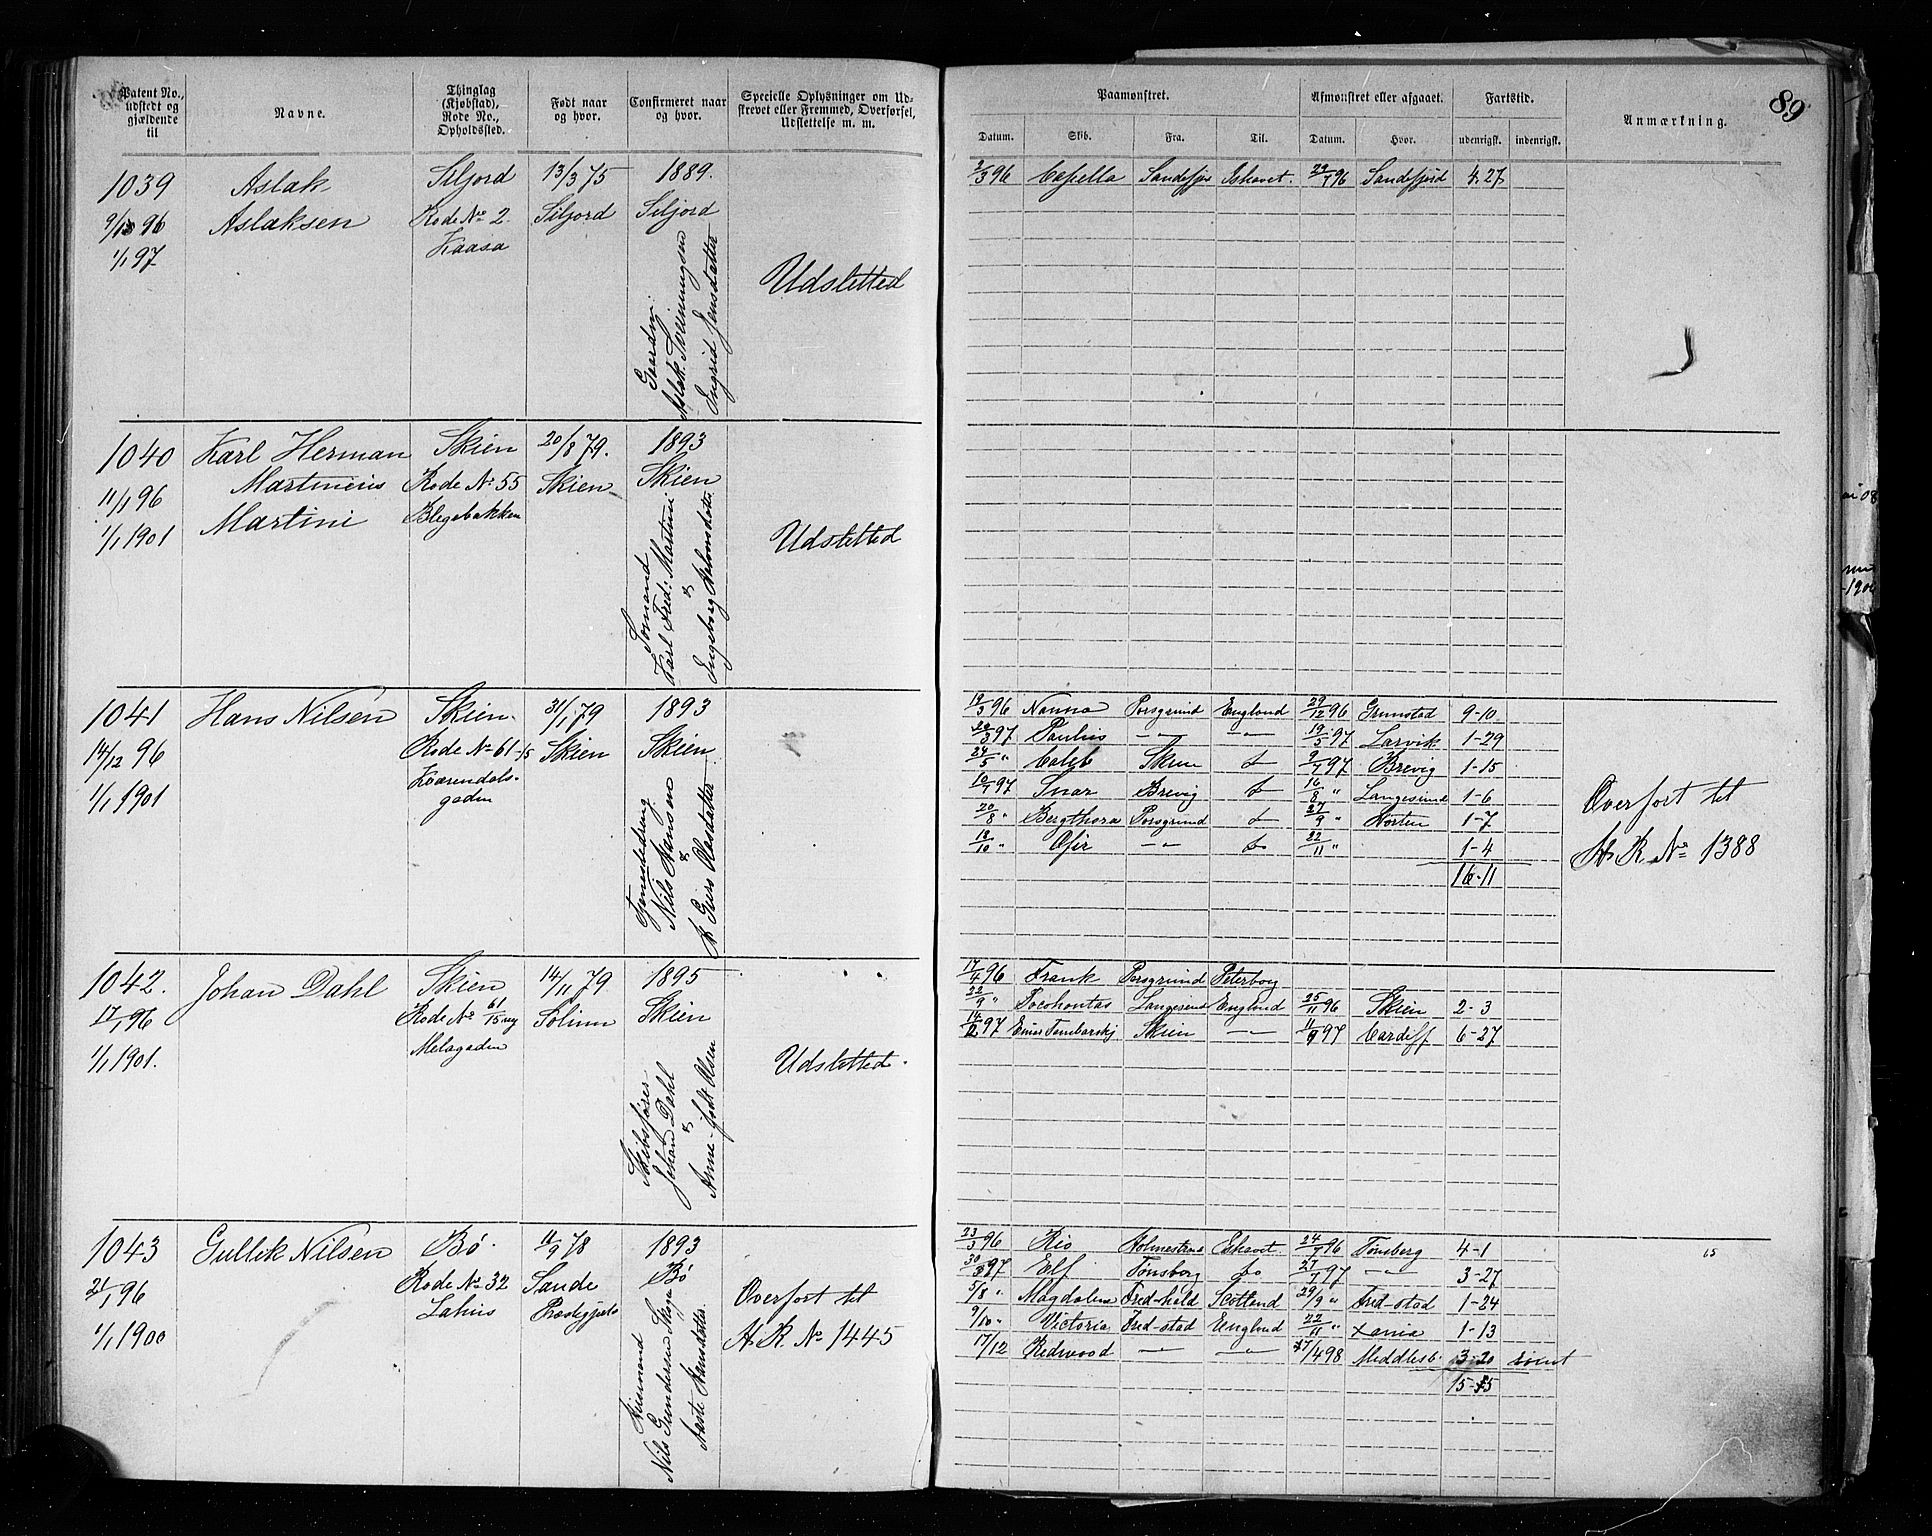 89
Patent No., udstedt og gjældende til
Navne.
Thinglag (Kjøbstad), Rode No., Opholdssted.
Født naar og hvor.
Confirmeret naar og hvor.
Specielle Oplysninger om Udskrevet eller Fremmed, Overførsel, Udslettelse m. m.
Paamønstret.
Afmønstret eller afgaaet.
Fartstid.
Anmærkning.
Datum. Skib. Fra. Til. Datum. Hvor. udenrigsk. indenrigsk.
1039 Aslak Siljord 13/3 75 1889.
96 Aslaksen Rode No 2. Siljord Siljord
1/1 97 Kaasa
Gaardm:
Aslak Sveinungsen
Ingrid Jensdatter
Udsletted
2/3 96 Capella Sandefjor Ishavet. 96 Sandefjord 4.27
1040 Karl Herman Skien 20/8 79. 1893
11/1 96 Martinius Rode No 55 Skien Skien
1/1 1901 Martini Blegebakken
Sømand
Karl Fred: Martini
&
Ingeborg Halvorsdatter
Udslettet
1041 Hans Nilsen Skien. 31/1 79 1893
14/12 96 Rode No 61-15 Skien Skien
1/1 1901 Kværndals-
gaden
Tjenestedreng
Nils Hansen
&
Olsdatter
96 Nanna Porsgrund England 29/12 96 Grimstad 9-10
97 Paulus -"- -"- 19/5 97 Larvik 1-29
24/5 " Caleb Skien do 9/7 97 Brevig 1-15
97 Snar Brevig do 16/8 " Langesund 1-6
20/8 " Bergthora Porsgrund do 27/9 " Horten 1-7
18/10 " Ofir -"- do 22/11 " 1-4
16-11
Overført til
H. R. No 1388
1042. Johan Dahl Skien 14/11 79. 1895
17/1 96 Rode No 61/15 ny Solum Skien
1/1 1901. Melagaden
Skibsfører
Johan Dahl
&
Anne født Olsen
Udslettet.
17/4 96 Frank Porsgrund Peterborg
22/9 " Pocohontas Langesund England 25/11 96 Skien 2-3
14/12 97 Skien -"- 97 Cardiff 6-27
1043 Gullik Nilsen Bø. 11/9 78 1893
21/1 96 Rode No 32 Sande Bø
1/1 1900
Husmand
Nils Gundersen
Aaste Hansdatter
Overført til
H. R. No 1445
23/3 96 Rio Holmestrand Ishavet 24/7 96 Tønsberg 4-1
97 Elf Tønsberg do 27/7 97 -"- 3-27
5/8 " Magdalena Fred-hald Scotland 29/9 " Fred-stad 1-24
9/10 " Victoria Fred-stad England 22/11 " Xania 1-13
17/12 Redwood -"- -"- 4 98 Middlesb. 3-20 rømt
15-25
15